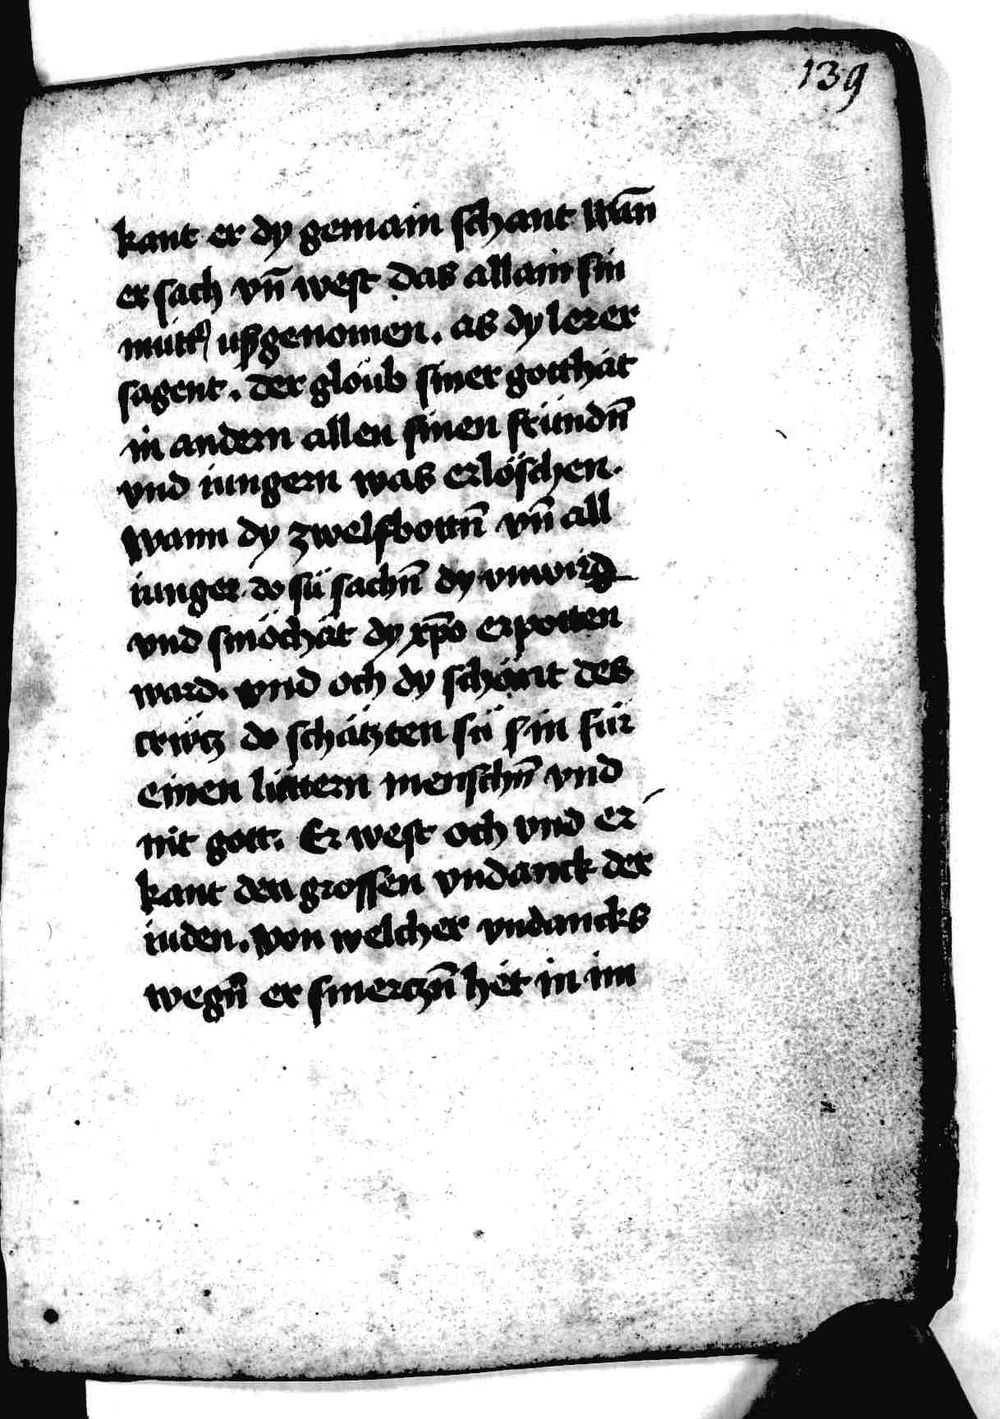 139
kant er dy gemain schant wan̄
er sach vn̄ west das allain sin
mūtt͛ uſzgenomen. als dy lerer
sagent. der gloub siner gotthät
in andern allen sinen fründn̄
vnd iungern was erlöschen.
wann dy zwelfbottn̄ vn̄ all
iunger do sü sachn̄ dy vnwird
vnd smöchät dy xp̄o erpotten
ward. vnd och dy schönt des
crütz do schätzten sü sin für
einen lüttern menschn̄ vnd
nit gott. Er west och vnd er
kant den grossen vndanck der
iuden. von welcher vndancks
wegn̄ er smerczn̄ het in im